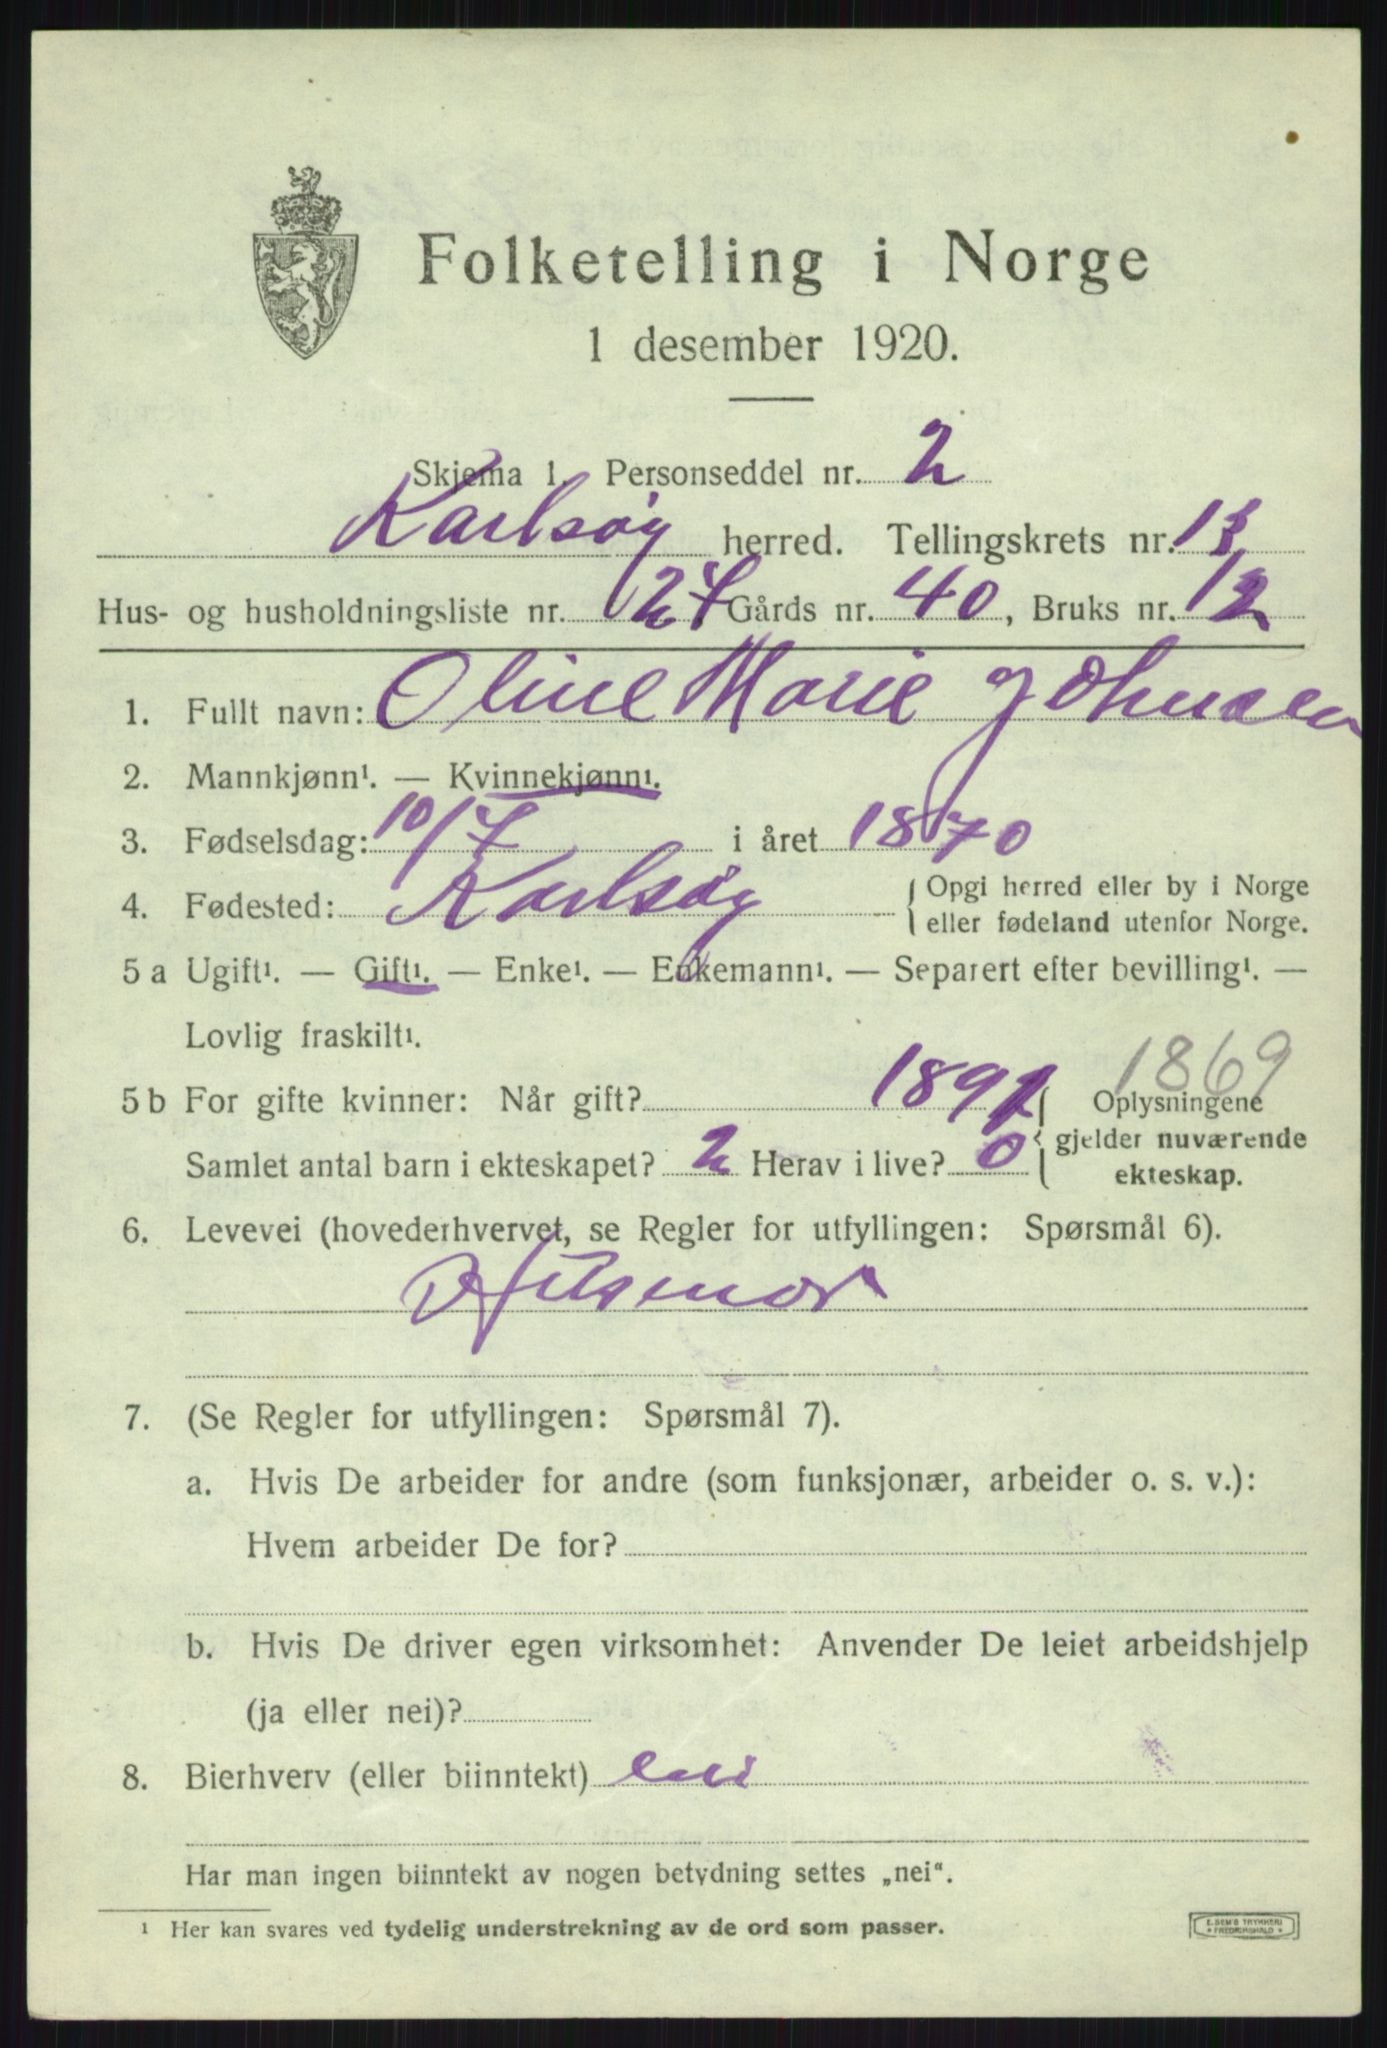 Folketelling i Norge
1 desember 1920.
Skjema 1. Personseddel nr. 2
Karlsøy herred. Tellingskrets nr. 13
Hus- og husholdningsliste nr. 27 Gårds nr. 40, Bruks nr. 12
1. Fullt navn: Oline Marie Johnsen
2. Mannkjønn¹. — Kvinnekjønn¹.
3. Fødselsdag: 10/7 i året 1870
4. Fødested: Karlsøy { Opgi herred eller by i Norge
eller fødeland utenfor Norge.
5 a Ugift¹. — Gift¹. — Enke¹. — Enkemann¹. — Separert efter bevilling¹. —
Lovlig fraskilt¹.
1869
5 b For gifte kvinner: Når gift? 1897 { Oplysningene
gjelder nuværende
Samlet antal barn i ekteskapet? 2 Herav i live? 0
ekteskap.
6. Levevei (hovederhvervet, se Regler for utfyllingen: Spørsmål 6).
Husmor
7. (Se Regler for utfyllingen: Spørsmål 7).
a. Hvis De arbeider for andre (som funksjonær, arbeider o. s. v.):
Hvem arbeider De for?
b. Hvis De driver egen virksomhet: Anvender De leiet arbeidshjelp
(ja eller nei)?
8. Bierhverv (eller biinntekt) nei
Har man ingen biinntekt av nogen betydning settes „nei“.
¹ Her kan svares ved tydelig understrekning av de ord som passer.
E. SEM'S TRYKKERI
* FREDRIKSHALD *